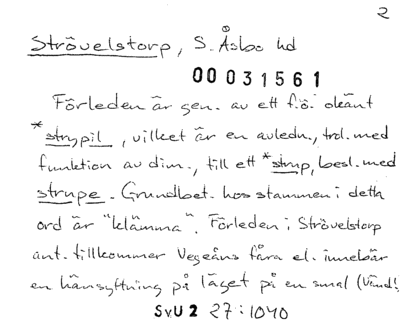 2
Strövelstorp, S. Åsbo hd
00031561
Förleden är gen. av ett f.ö. okänt
*strypil, vilket är en avledn., trol. med
funktion av dim., till ett *strup, besl. med
strupe. Grundbet. hos stammen i detta
ord är "klämma". Förleden i Strövelstorp
ant. tillkommer Vegeåns fåra el. innebär
en hänsyftning på läget på en smal (Vänd!
SvU2 27:1040